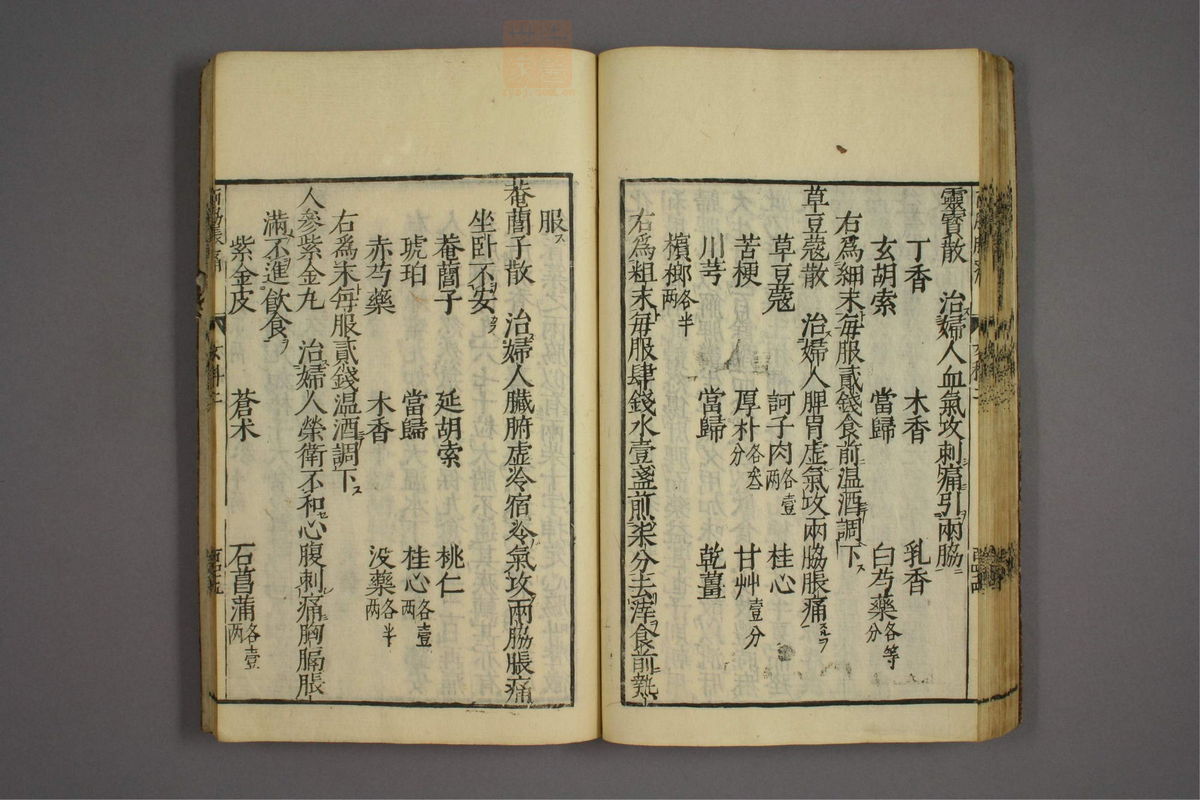 靈寳散　治婦人血氣攻刺痛引兩脇
丁香　木香　乳香
玄胡索　當歸　白芍藥各等分
右爲細末每服貳錢食前温酒調下
草豆蔻散　治婦人脾胃虚氣攻兩脇脹痛
草豆蔻　訶子肉各壹两　桂心
苦梗　厚朴各叁分　甘艸壹分
川芎　當歸　乾薑
檳榔各半两
右爲粗末每服肆錢水壹盞煎柒分去滓食前熱
服
菴䕡子散　治婦人臟腑虚冷宿冷氣攻兩脇脹痛
坐卧不安
菴䕡子　延胡索　桃仁
琥珀　當歸　桂心各壹两
赤芍藥　木香　没藥各半两
右爲末每服貳錢温酒調下
人參紫金丸　治婦人榮衛不和心腹刺痛胸膈脹
滿不進飲食
紫金皮　蒼术　石菖蒲各壹两